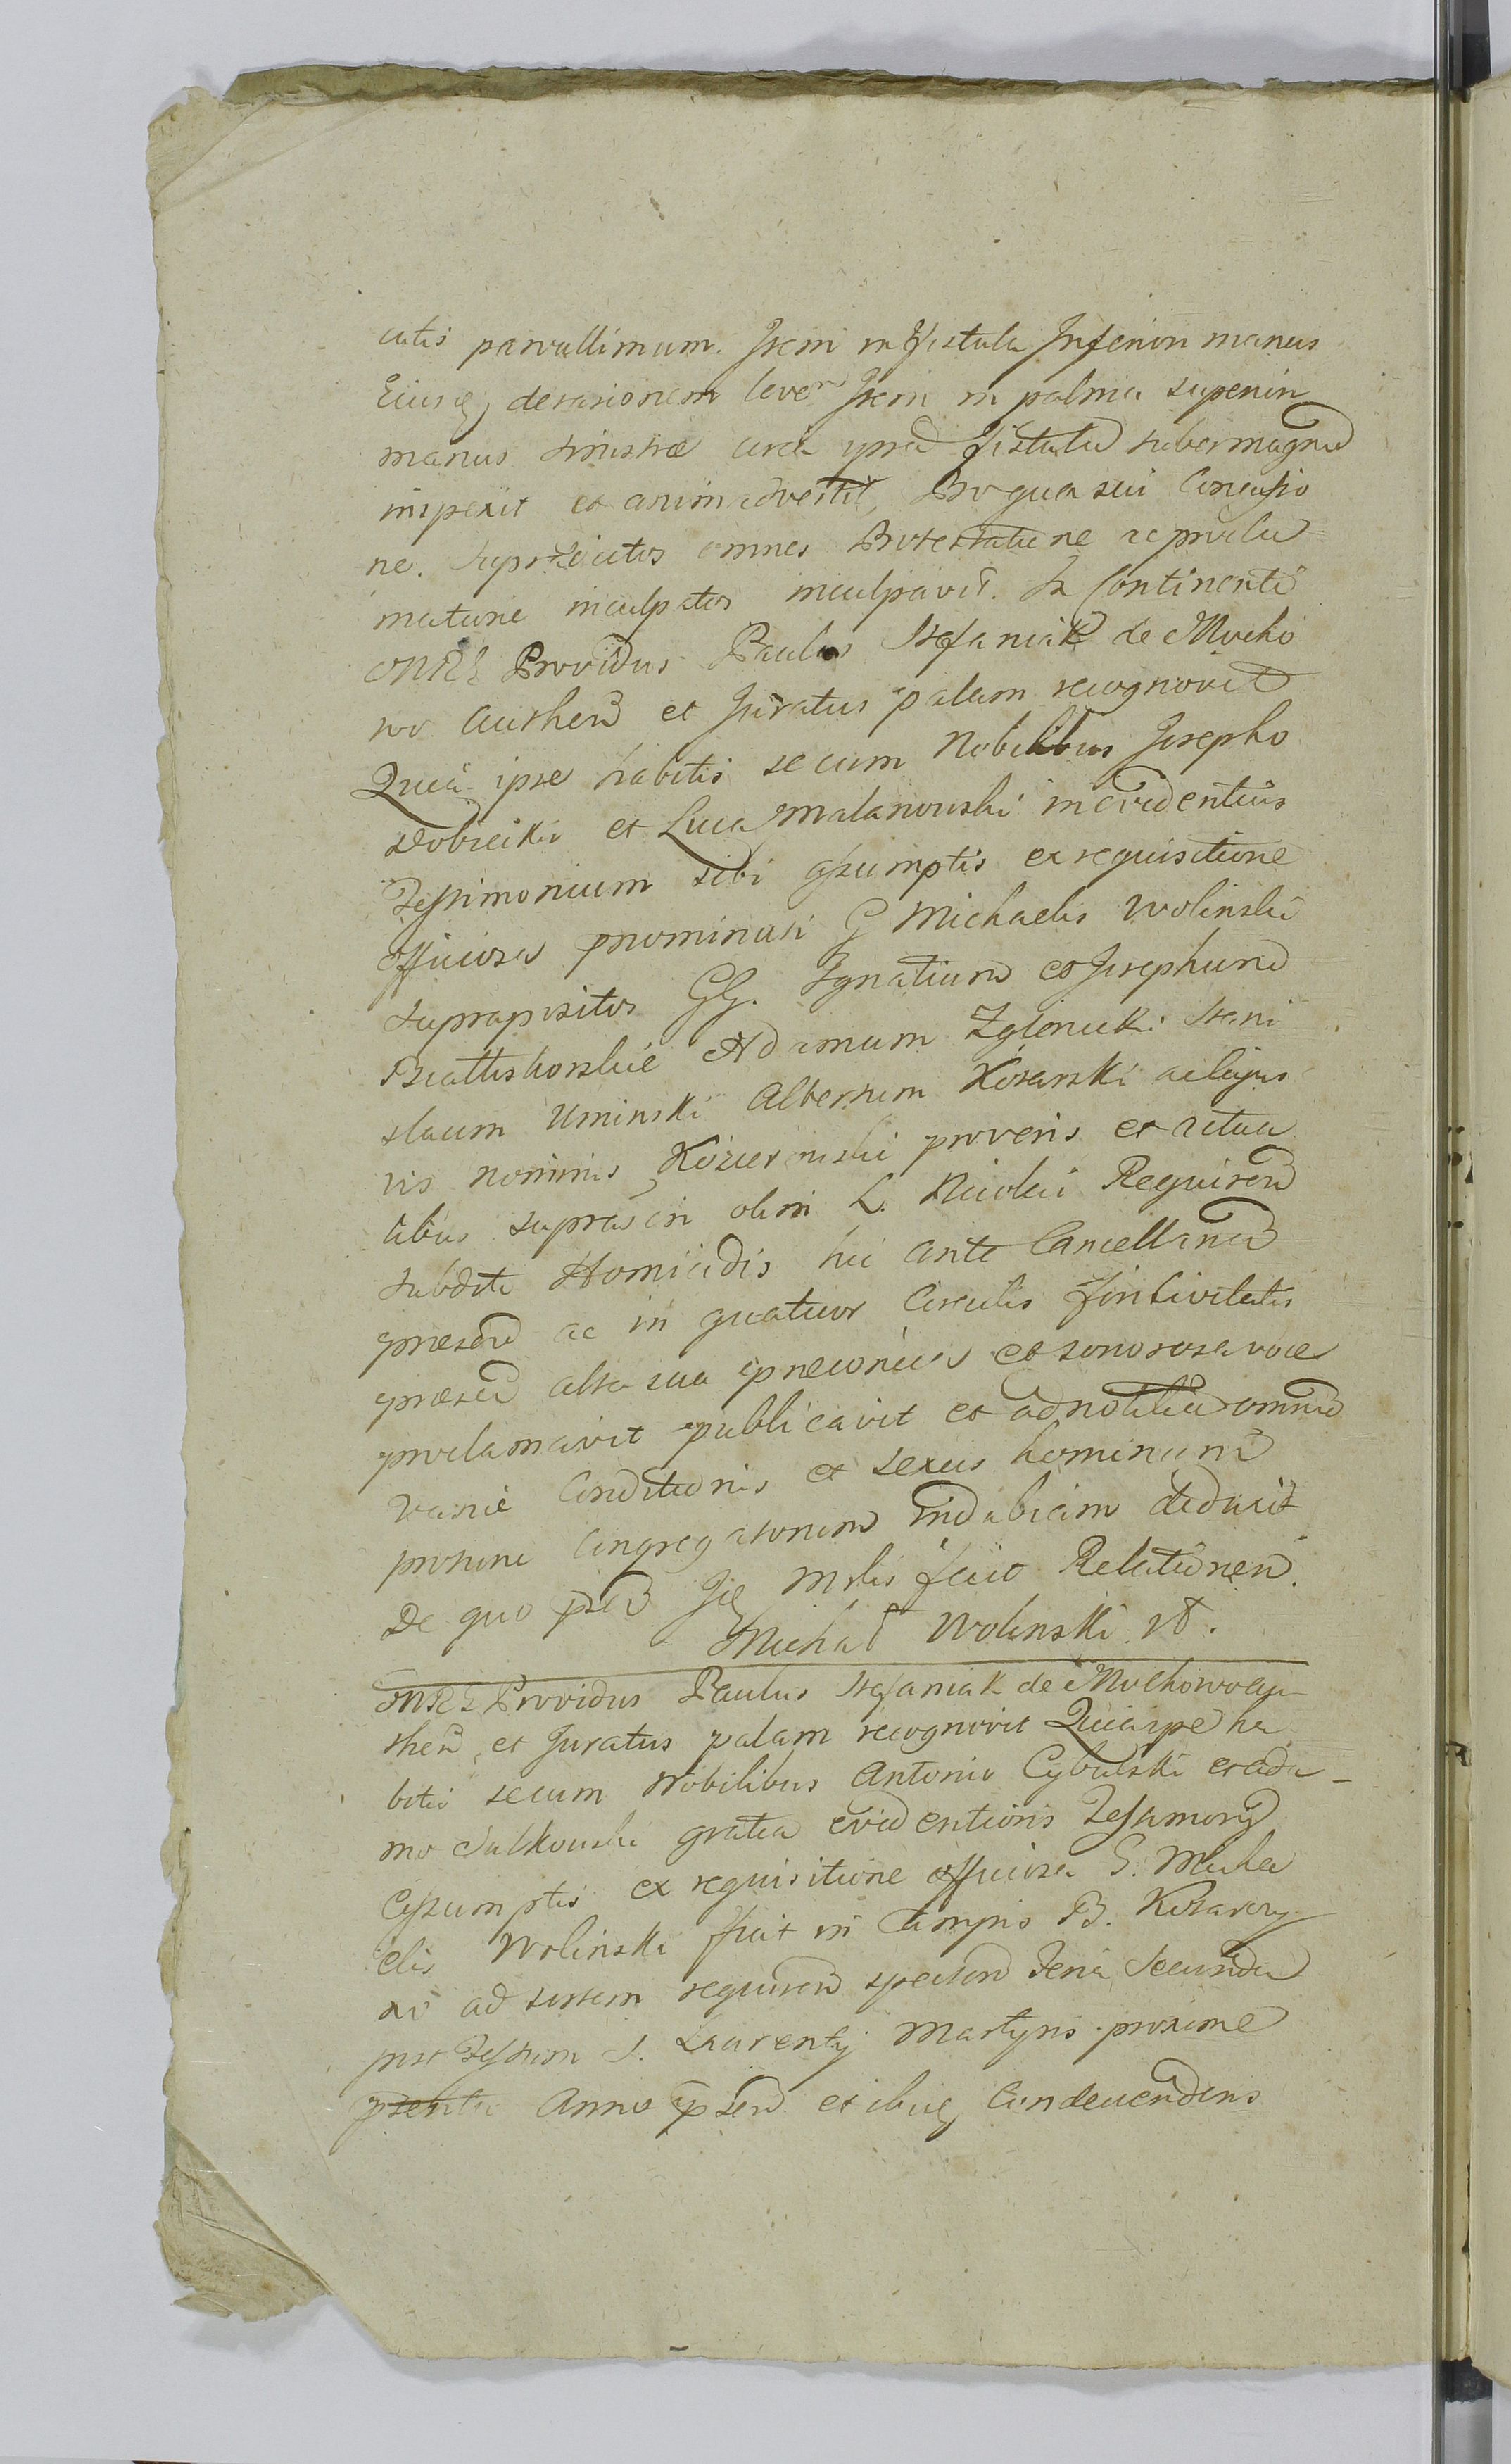 cutis parvullimum. Item in fistula Inferiori manus
Eiusq, derasionem leven Item in palma superiori
manus sinistræ circa ipsa fistula tuber magnu
inspexit et animadvertit, Pro qua sui Concussio
ne. supradictos omnes Protestatione ac procla
matione inculpatos inculpavit. In Continenti
ONRE Providus Paulus Stefaniak de Mocho
wo authen et Juratus palam recognovit
Quia ipse habitis secum Nobilibus Josepho
Dobieiki et Luca Malanowski in evidentius
Testimonium sibi assumptis ex requisitione
officiosa prominati G Michaelis Wolinski
suprapositos GG. Ignatium et Josephum
Bratkowskie Adamum Zglenicki Stani
slaum Uminski Albertum Kosarski ac cujus
vis nominis Kozierowski pro veris et actua
libus supras in olim L. Nicolai Requiren
subditi Homicidis hic ante Cancellariam
præsen ac in quatuor Circulis fori Civitatis
præsen alta sua præconica et sonorosa voce
proclamavit publicavit et ad notitia omniu
variæ Conditionis et sexus hominum
protunc Congregatorum indubiam deduxit
De quo psen Jq Mrlis fecit Relationem.
Michał Wolinski
ONRE Providus Paulus Stefaniak de Mochowo au
then et Juratus palam recognovit Quia ipse ha
bitis secum Nobilibus Antonio Cybulski et Ada-
mo Sulkowski gratia evidentioris Testimony
assumptis ex requisitione officiosa G. Micha
elis Wolinski fuit in Campis B. Kosarzy
no ad sortem requiren spectan Feria Secunda
post Festum S. Laurenty Martyris proxime
Anno psen et ibiq Condescendens